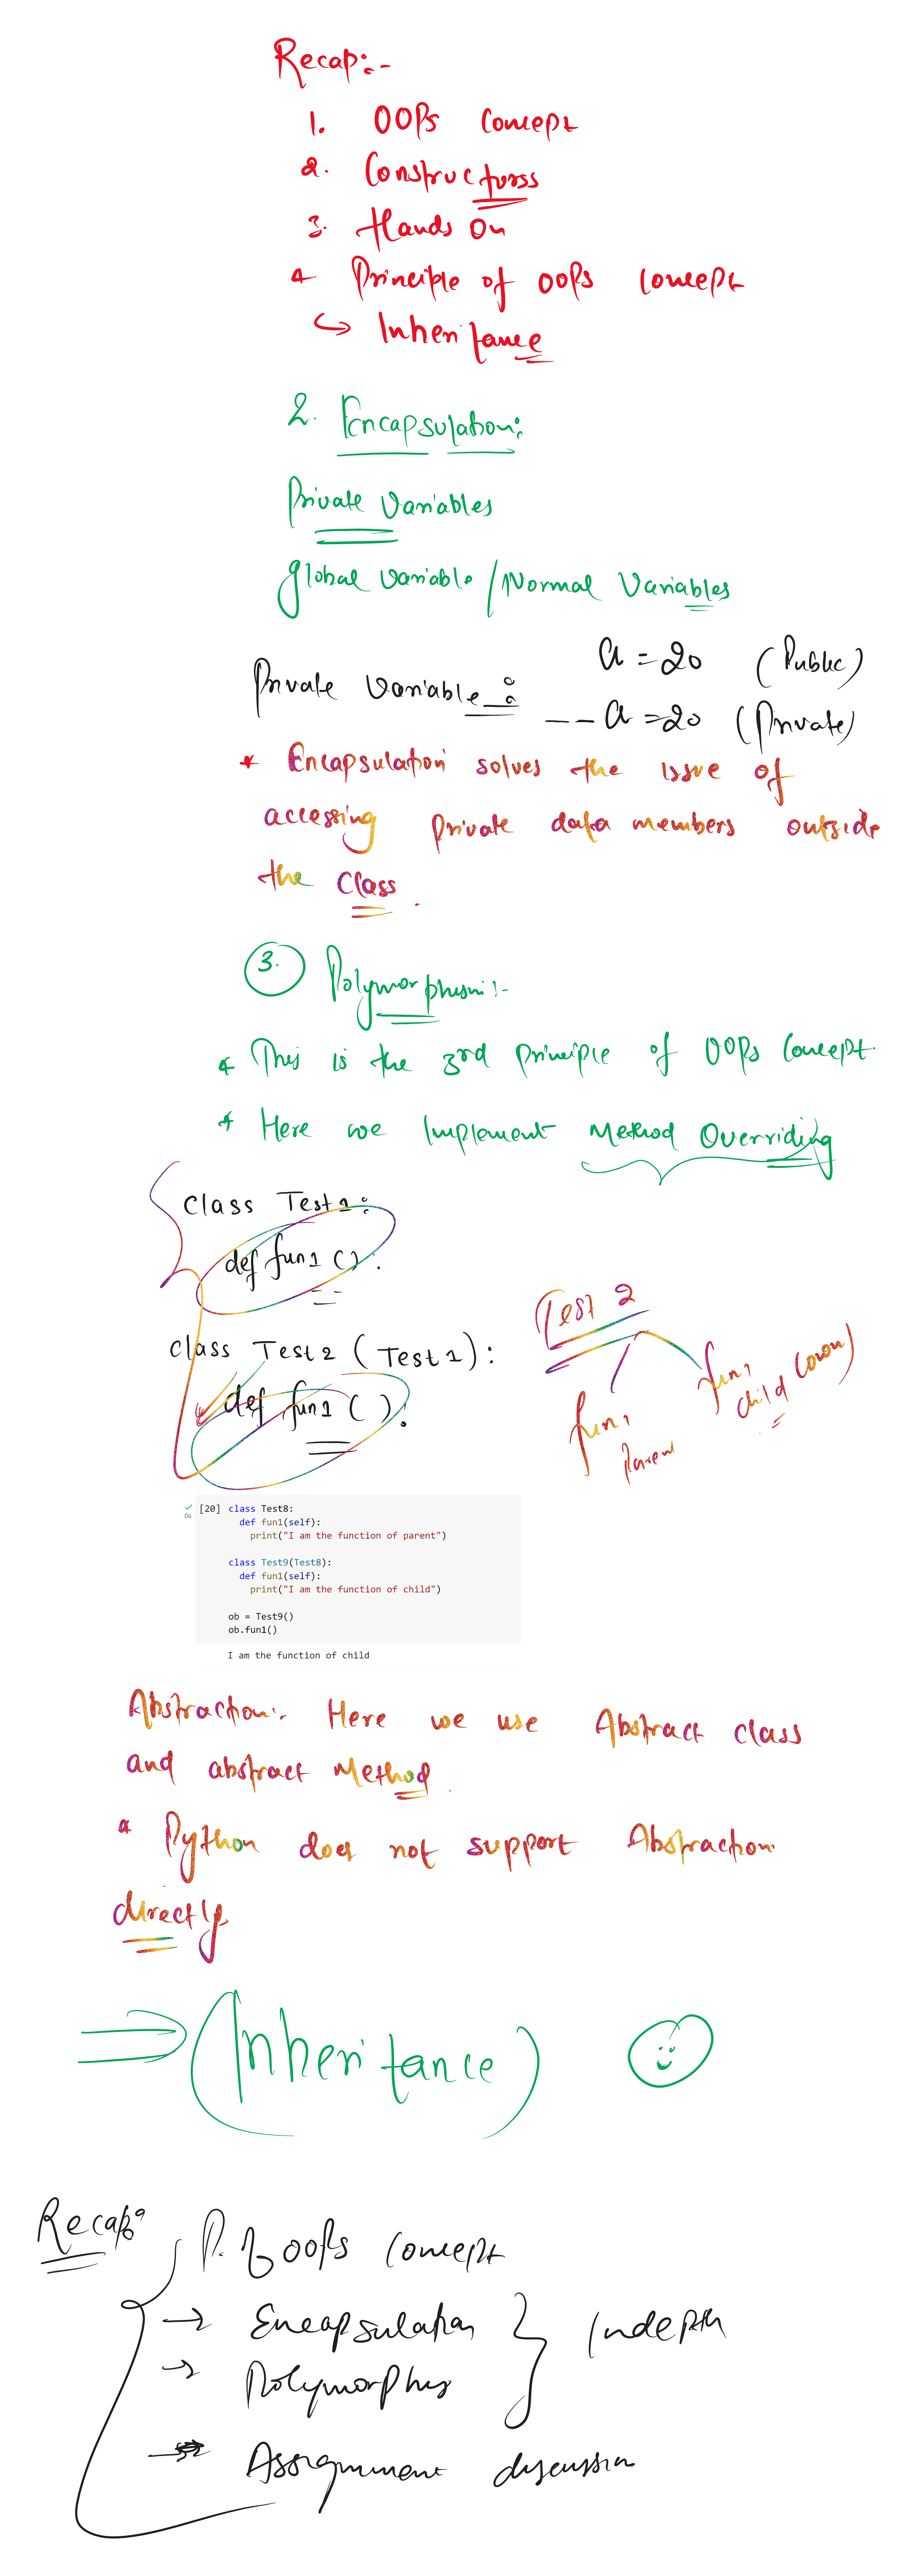 Recap:-
1. OOPs Concept
2. Constructorss
3. Hands On
4 Principle of OOPs Concept
↳ Inheritance
2. Encapsulation:
Private Variables
global variable / Normal Variables
a = 20 (Public)
Private Variable :
__a = 20 (Private)
* Encapsulation solves the issue of
accessing private data members outside
the Class.
3. Polymorphism:-
* This is the 3rd principle of OOPs Concept.
* Here we Implement Method Overriding
Class Test1:
def fun1 ().
Class Test2 (Test1):
def fun1 ().
Test 2
fun1 Parent
fun1 child (own)
[20] class Test8:
def fun1(self):
print("I am the function of parent")
class Test9(Test8):
def fun1(self):
print("I am the function of child")
0s
ob = Test9()
ob.fun1()
I am the function of child
Abstraction:- Here we use Abstract class
and abstract Method.
* Python does not support Abstraction
directly
⇒ (Inheritance)
Recap:
P. of OOPs Concept
→ Encapsulation
→ Polymorphism
Indepth
→ Assignment discussion